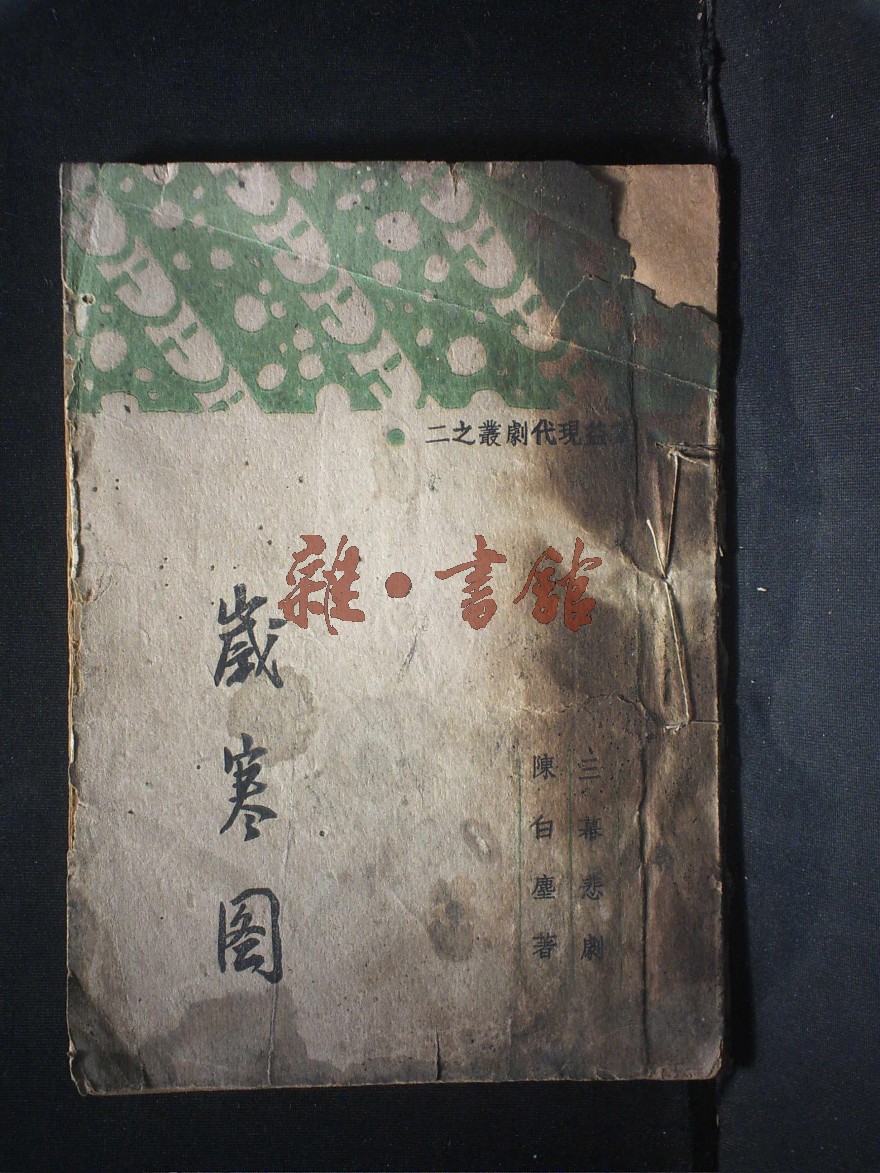 益現代劇叢之二
雜•書館
三幕悲劇
陳白塵著
歲寒图